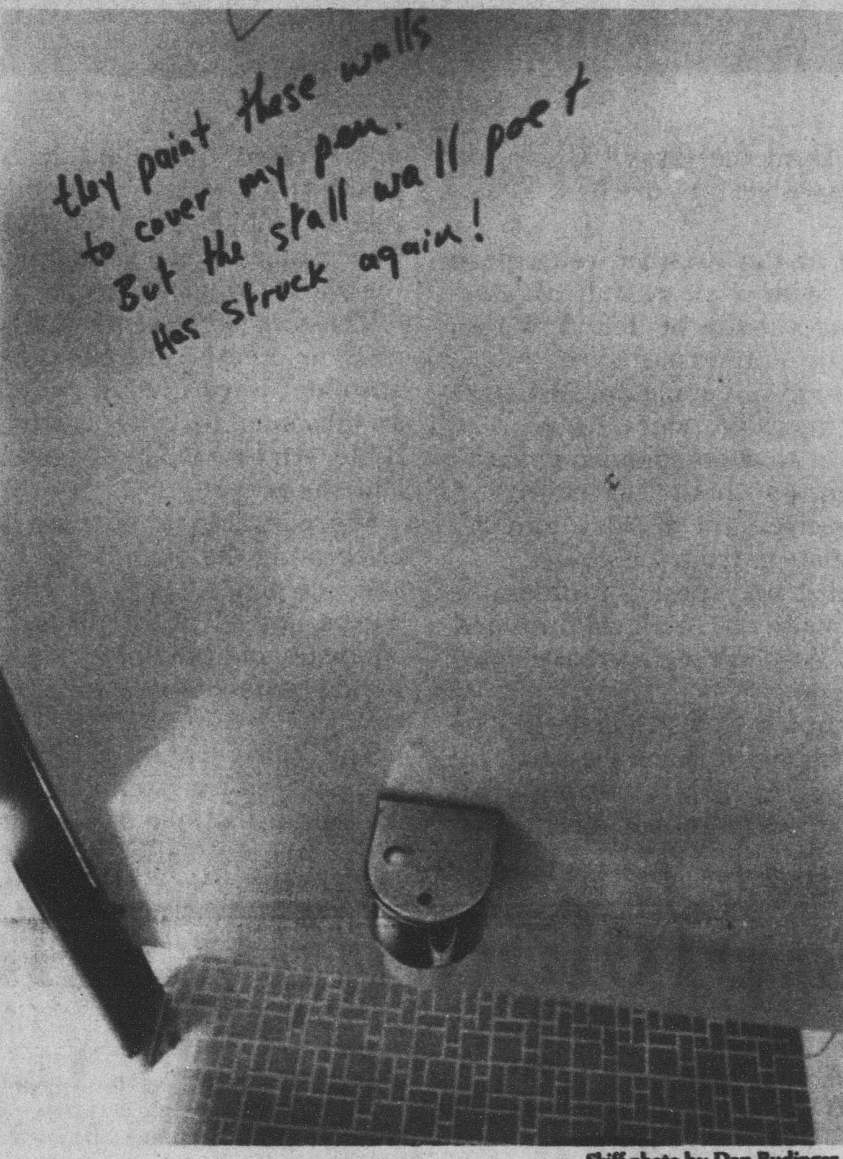 they paint these walls
to cover my pen.
But the stall wall poet
Has struck again!
Skiff photo by Dan Budinger